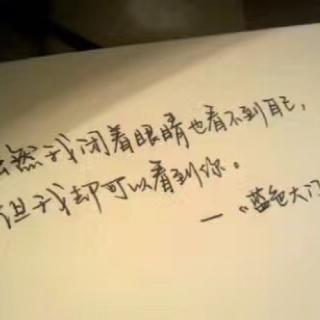 虽然我闭着眼睛也看不到自己，
但我却可以看到你。
—《蓝色大门